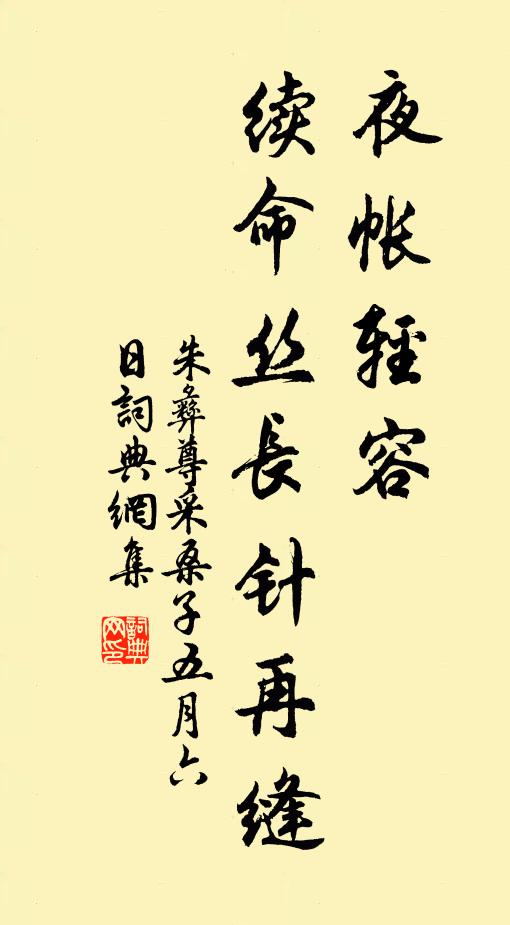 夜帐輕容
续命丝長针再缝
朱彝尊采桑子五月六
日詞典網集
詞典网印